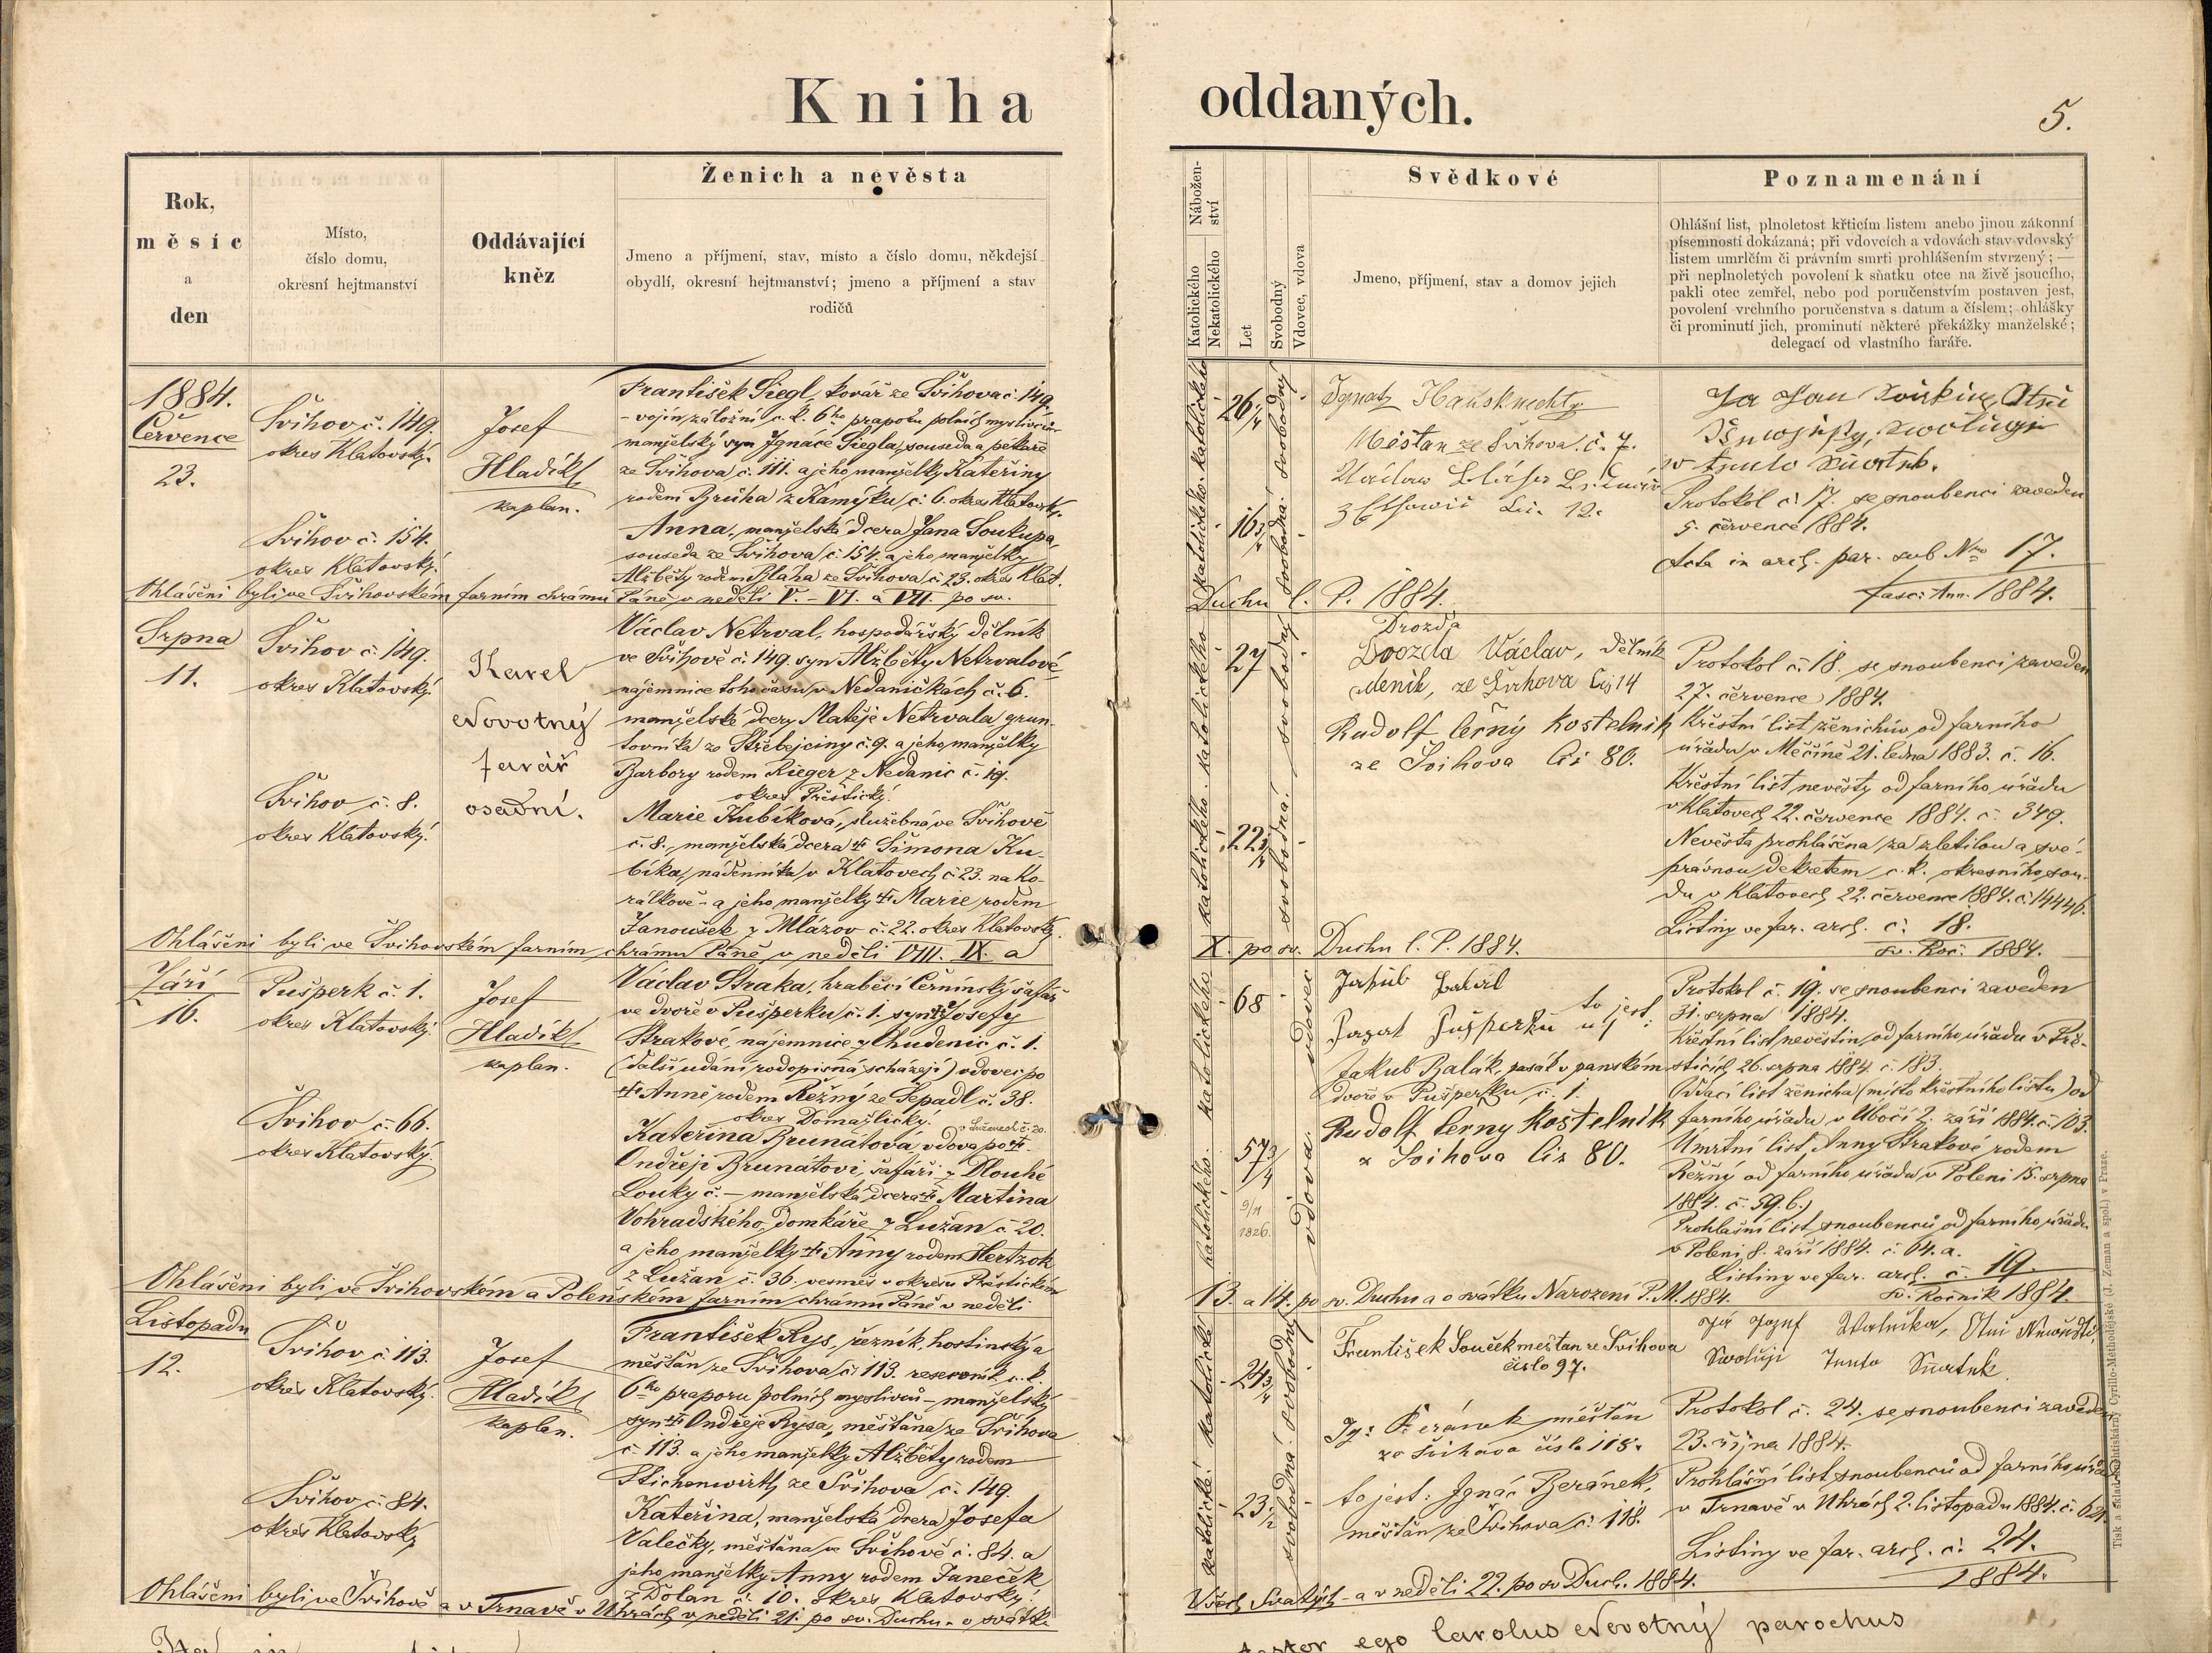 Kniha
oddaných.
5.
Rok,
měsíc
a
den
Místo,
číslo domu,
okresní hejtmanství
Oddávající
kněz
Ženich a nevěsta
Jmeno a příjmení, stav, místo a číslo domu, někdejší
obydlí, okresní hejtmanství; jmeno a příjmení a stav
rodičů
Nábožen-
ství
Katolického
Nekatolického
Let
Svobodný
Vdovec, vdova
Svědkové
Jmeno, příjmení, stav a domov jejich
Poznamenání
Ohlášní list, plnoletost křticím listem anebo jinou zákonní
písemností dokázaná; při vdovcích a vdovách stav vdovský
listem umrlčím či právním smrti prohlášením stvrzený; —
při neplnoletých povolení k sňatku otce na živě jsoucího,
pakli otec zemřel, nebo pod poručenstvím postaven jest,
povolení vrchního poručenstva s datum a číslem; ohlášky
či prominutí jich, prominutí některé překážky manželské;
delegací od vlastního faráře.
1884.
Července
23.
Švihov č. 149.
okres Klatovský.
Švihov č. 154.
okres Klatovský.
Josef
Hladík
kaplan.
František Siegl, kovář ze Švihova č. 149
- vojín záložní c. k. 6ho praporu polních myslivců -
manželský syn Ignáce Siegla, souseda a pekaře
ze Švihova č. 111. a jeho manželky Kateřiny
rodem Brůha z Kamýku č. 6. okres Klatovský.
Anna, manželská dcera Jana Soukupa,
souseda ze Švihova č. 154. a jeho manželky
Alžběty rodem Bláha ze Švihova č. 23. okres Klat.
katolického
26 1/4
svobodný
katolického
16 3/4
svobodná
Ignatz Hausknechty
Měštan ze Švihova č. 7.
12.
v tento
Protokol č. 17. se snoubenci zaveden
5. července 1884.
Acta in arch. par. sub Nro 17.
fasc. Ann. 1884.
Ohlášeni byli ve Švihovském farním chrámu Páně v neděli V. - VI. a VII. po sv. Duchu l. P. 1884.
Srpna
11.
Švihov č. 149.
okres Klatovský.
Švihov č. 8.
okres Klatovský.
Karel
Novotný
farář
osadní.
Václav Netrval, hospodářský dělník
ve Švihově č. 149. syn Alžběty Netrvalové
nájemnice toho času v Nedaničkách č. 6.
manželské dcery Matěje Netrvala grun-
tovníka ze Střebejciny č. 9. a jeho manželky
Barbory rodem Rieger z Nedanic č. 19.
okres Přeštický.
Marie Kubíková, služebná ve Švihově
č. 8., manželská dcera † Šimona Ku-
bíka, nádenníka v Klatovech č. 23. na Ko-
rálkově - a jeho manželky † Marie rodem
Janoušek z Mlázov č. 22. okres Klatovský.
katolického
27
svobodný
katolického
22 1/4
svobodná
Drozda
Drozda Václav, dělník
denik, ze Švihova čis 14
Rudolf Černý Kostelnik
ze Švihova čis 80.
Protokol č. 18. se snoubenci zaveden
27. července 1884.
Křestní list ženichův od farního
úřadu v Měčíně 21. ledna 1883. č. 16.
Křestní list nevěsty od farního úřadu
v Klatovech 22. července 1884. č. 349.
Nevěsta prohlášena za zletilou a své-
právnou dekretem c. k. okresního sou-
du v Klatovech 22. července 1884. č. 14446.
Listiny ve far. arch. č. 18.
sv. Roč. 1884.
Ohlášeni byli ve Švihovském farním chrámu Páně v neděli VIII. IX. a X. po sv. Duchu l. P. 1884.
Září
16.
Pušperk č. 1.
okres Klatovský.
Švihov č. 66.
okres Klatovský.
Josef
Hladík
kaplan.
Václav Straka, hraběcí Černínský šafář
ve dvoře v Pušperku č. 1. syn † Josefy
Strakové, nájemnice z Chudenic č. 1.
(další udání rodopisná scházejí) vdovec po
† Anně rodem Řežný ze Sepadl č. 38.
okres Domažlický.
v Luženech č. 20.
Kateřina Brunátova vdova po †
Ondřeji Brunátovi, šafáři z Dlouhé
Louky č. — manželská dcera † Martina
Vohradského, domkáře z Lužan č. 20.
a jeho manželky † Anny rodem Hertzok
z Lužan č. 36. vesměs v okresu Přeštickém
katolického
68
vdovec
katolického
57 3/4
9/11
1826.
vdova
Jakub
to jest:
Jakub Balák, pasák v panském
dvoře v Pušperku č. 1.
Rudolf Černy Kostelnik
z Švihova čis 80.
Protokol č. 19. se snoubenci zaveden
31. srpna 1884.
Křestní list nevěstin od farního úřadu v Pře-
šticích 26. srpna 1884. č. 183.
Oddací list ženicha (místo křestního listu) od
farního úřadu v Úbočí 2. září 1884. č. 103.
Úmrtní list Anny Strakové rodem
Řežný od farního úřadu v Poleni 15. srpna
1884. č. 59. b.)
Prohlašní list snoubenců od farního úřadu
v Poleni 8. září 1884. č. 64. a.
Listiny ve far. arch. č. 19.
sv. Ročník 1884.
Ohlášeni byli ve Švihovském a Polenském farním chrámu Páně v neděli 13. a 14. po sv. Duchu a o svátku Narození P. M. 1884.
Listopadu
12.
Švihov č. 113.
okres Klatovský.
Švihov č. 84.
okres Klatovský
Josef
Hladík
kaplan.
František Rys, řezník, hostinský a
měšťan ze Švihova č. 113. reservník c. k.
6ho praporu polních myslivců - manželský
syn † Ondřeje Rysa, měšťana ze Švihova
č. 113. a jeho manželky Alžběty rodem
Stichenwirth ze Švihova č. 149.
Kateřina, manželská dcera Josefa
Valečky, měšťana ve Švihově č. 84. a
jeho manželky Anny rodem Janeček
z Dolan č. 10. okres Klatovský.
katolické
24 3/4
svobodný
katolické
23 1/2
svobodná
František Souček meštan ze Švihova
čislo 97.
Ig: Beránek měštan
ze Švihova čislo 118.
to jest: Ignác Beránek,
měšťan ze Švihova č. 118.
Já Jozef Walečka, Otec Newěsti,
Swoluji Tento Swatek.
Protokol č. 24. se snoubenci zaveden
23. října 1884.
Prohlášní list snoubenců od farního úřadu
v Trnavě v Uhrách 2. listopadu 1884. č. 621.
Listiny ve far. arch. č. 24.
1884.
Ohlášeni byli ve Švihově a v Trnavě v Uhrách v neděli 21. po sv. Duchu - o svátku Všech Svatých - a v neděli 22. po sv Duch. 1884.
testor ego Carolus Novotný parochus
Tisk a sklad knihtiskárny Cyrillo-Methodějské (J. Zeman a spol.) v Praze.